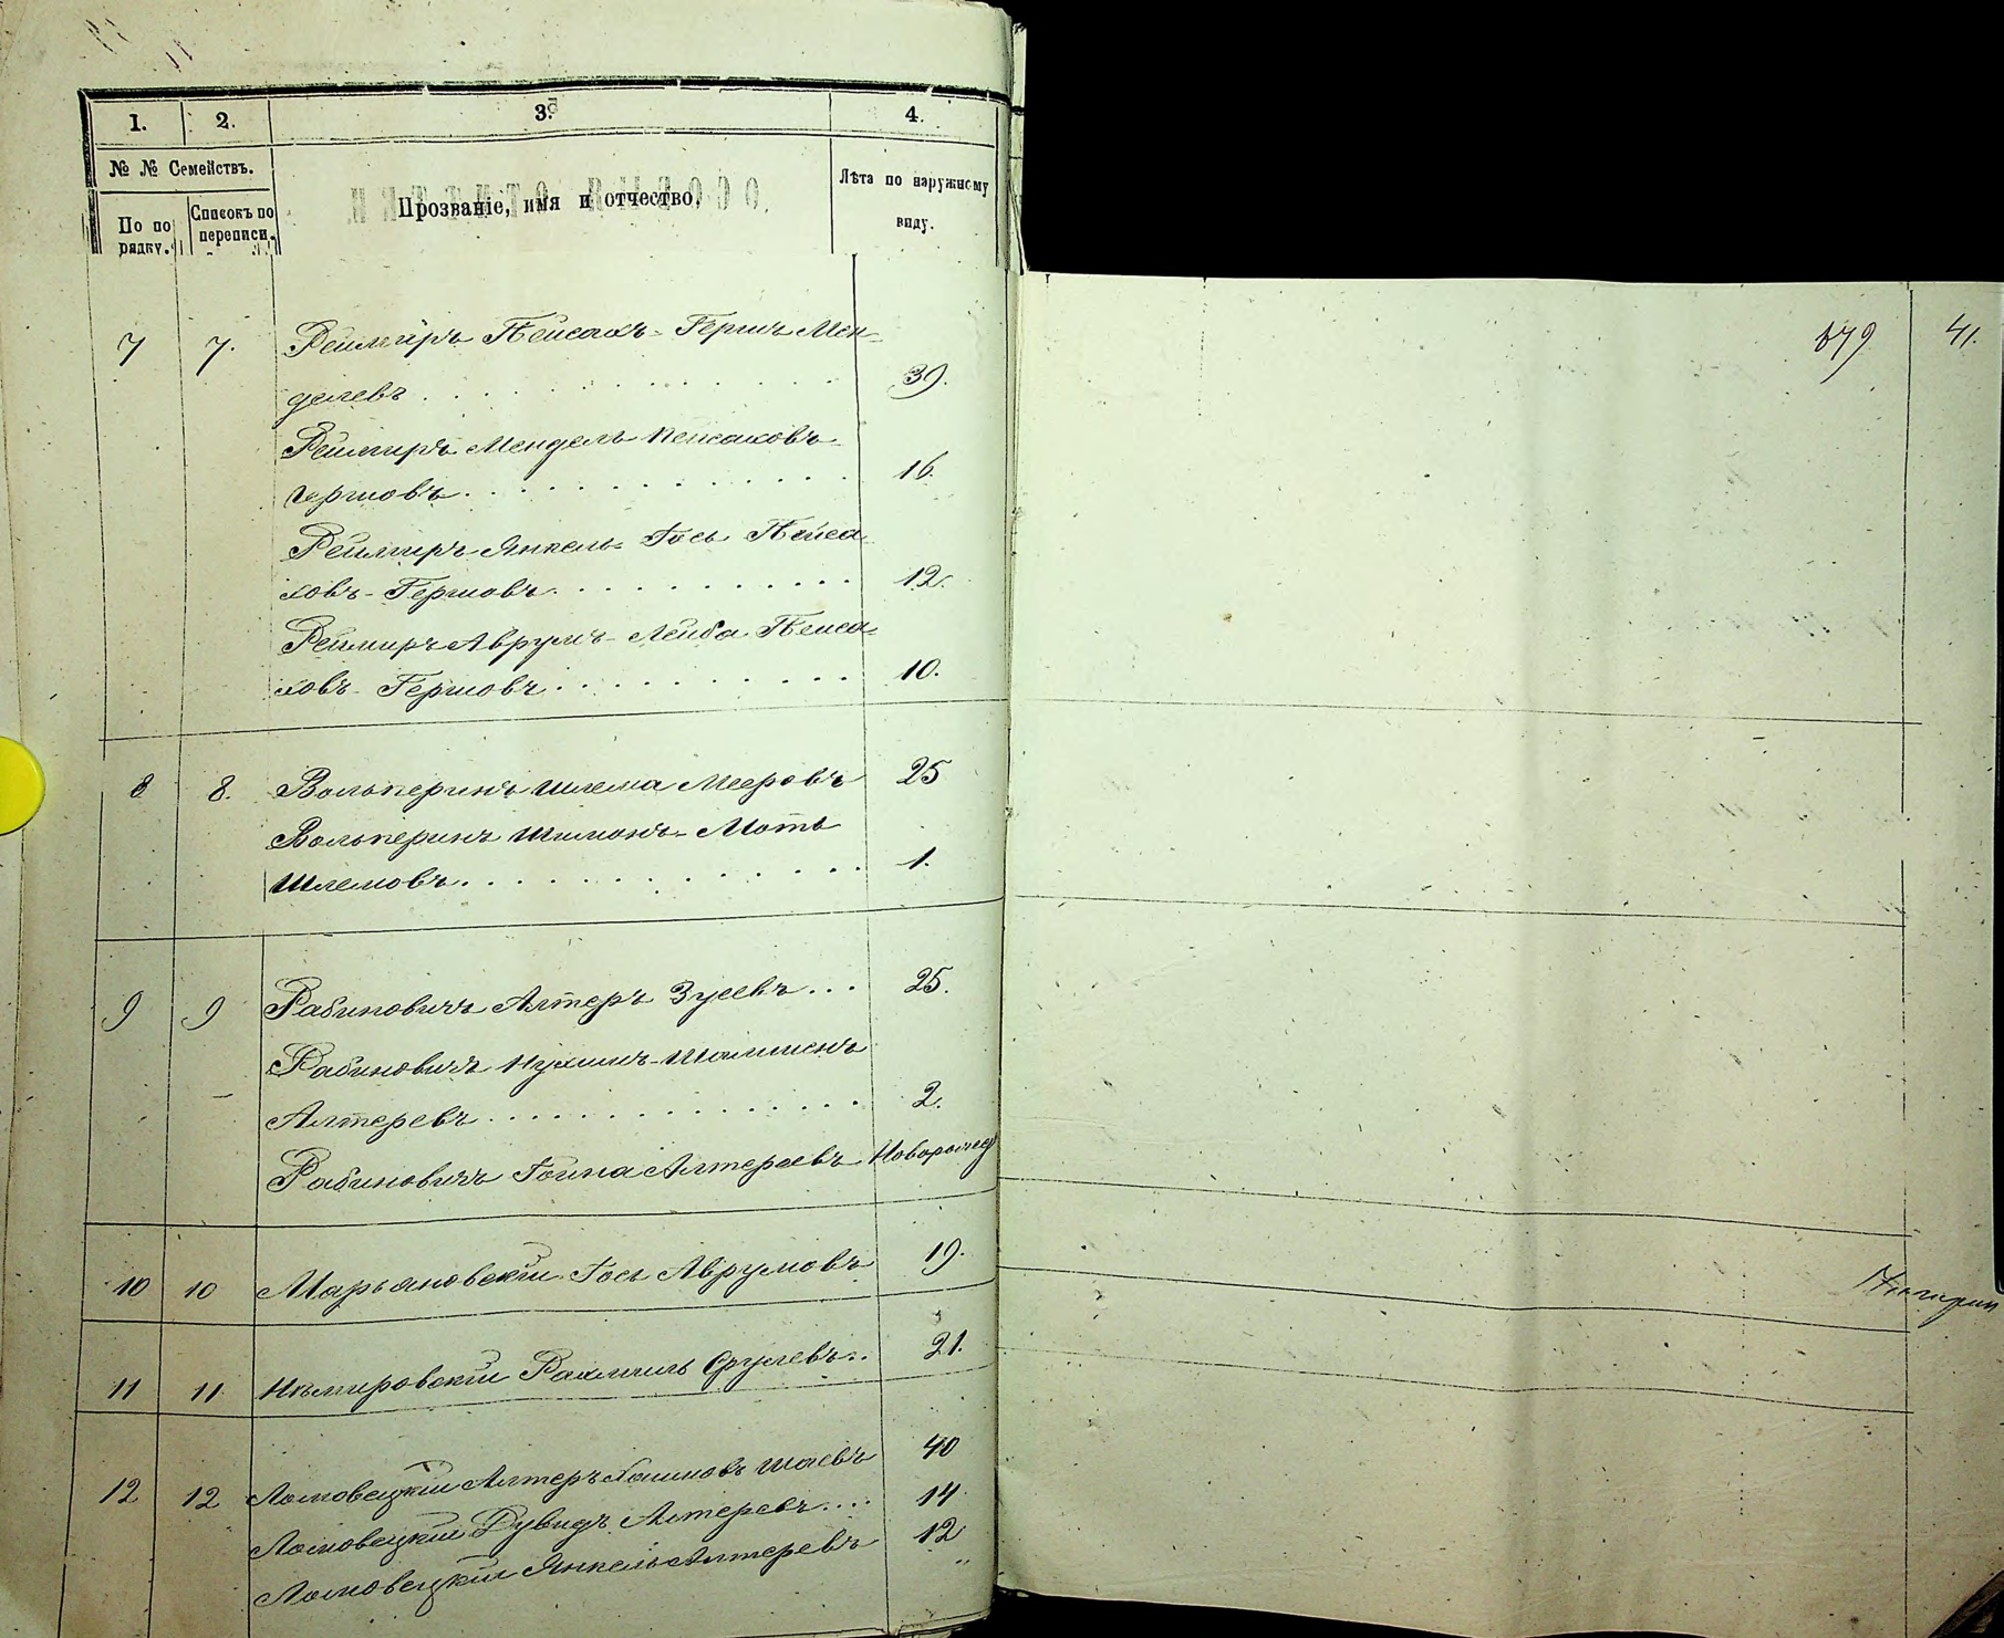 1. 2. 3. 4.
№ № Семействъ.
По по рядку.
Списокъ по переписи.
Прозваніе, имя и отчество.
Лѣта по наружному виду.
679 41.
7 7. Реймиръ Пейсахъ-Гершъ Мен-
делевъ 39.
Реймиръ Мендель Пейсаховъ-
Гершовъ 16.
Реймиръ Янкель-Іось Пейса-
ховъ-Гершовъ 12.
Реймиръ Аврумъ-Лейба Пейса-
ховъ-Гершовъ 10.
8 8. Вольперинъ Шлема Мееровъ 25
Вольперинъ Шимонъ-Моть
Шлемовъ 1.
9 9 Рабиновичъ Алтеръ Зусевъ 25.
Рабиновичъ Нухимъ-
Алтеревъ 2.
Рабиновичъ Алтеревъ Новорожед
10 10 Марьяновскій Іось Аврумовъ 19.
11 11 Немировскій Рахмиль Срулевъ 21.
12 12 Ломовецкій Алтеръ Хаимовъ Шаевъ 40
Ломовецкій Дувидъ Алтеревъ 14
Ломовецкій Янкель Алтеревъ 12